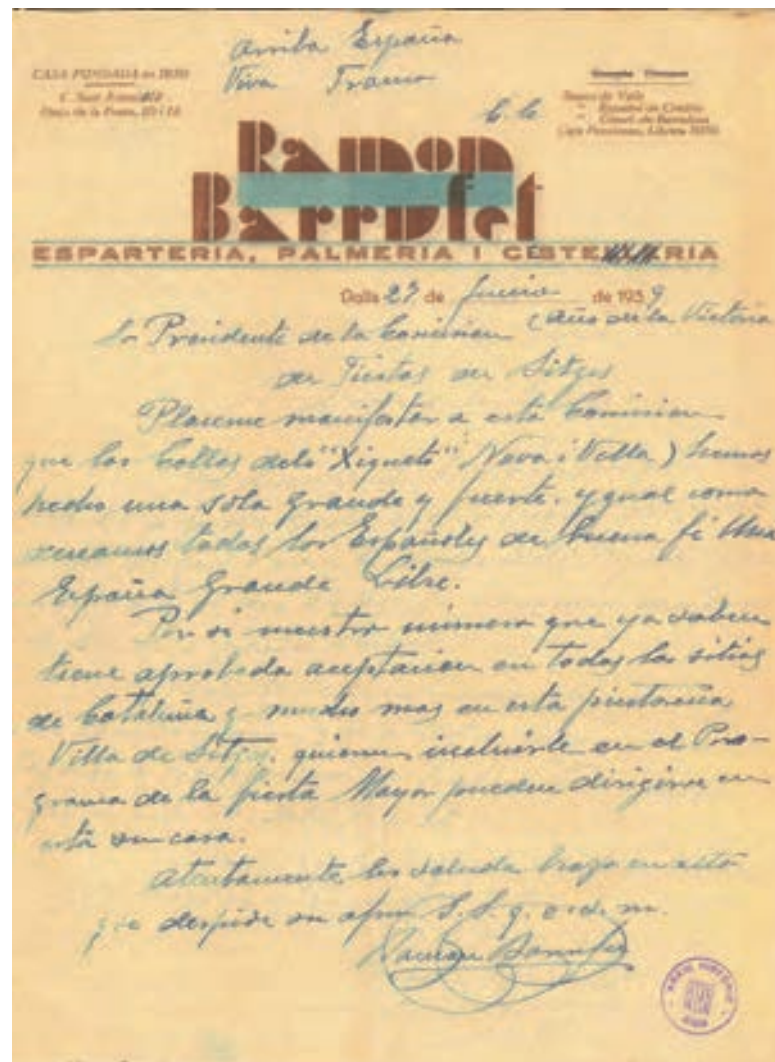 Arriba España
Viva Franco
CASA FUNDADA en 1850
C. Sant
de la Fruita,
Banco de Valls
" Español de Crédito
" Comrl. de Barcelona
Caja Pensiones, Libreta
RAMON
BARRUFET
ESPARTERIA, PALMERIA I CISTELLERIA
Valls 27 de Junio de 1939
(año de la Victoria
Sr Presidente de la Comision
de Fiestas de Sitges
Placeme manifestar a esta Comision
que las Collas dels "Xiquets" Nova i Vella) hemos
hecho una sola grande y fuerte. ygual como
todos los Españoles de buena fe Una
España Grande Libre.
Por si nuestro número que ya saben
tiene aprobada aceptacion en todos los sitios
de Cataluña y mucho mas en esta pintoresca
Villa de Sitges. quieren incluirle en el Pro-
grama de la fiesta Mayor pueden dirigirse en
esta su casa.
Atentamente les saluda brazo en alto
que despide su afmo S.S. q. e. s. m.
Ramon Barrufet